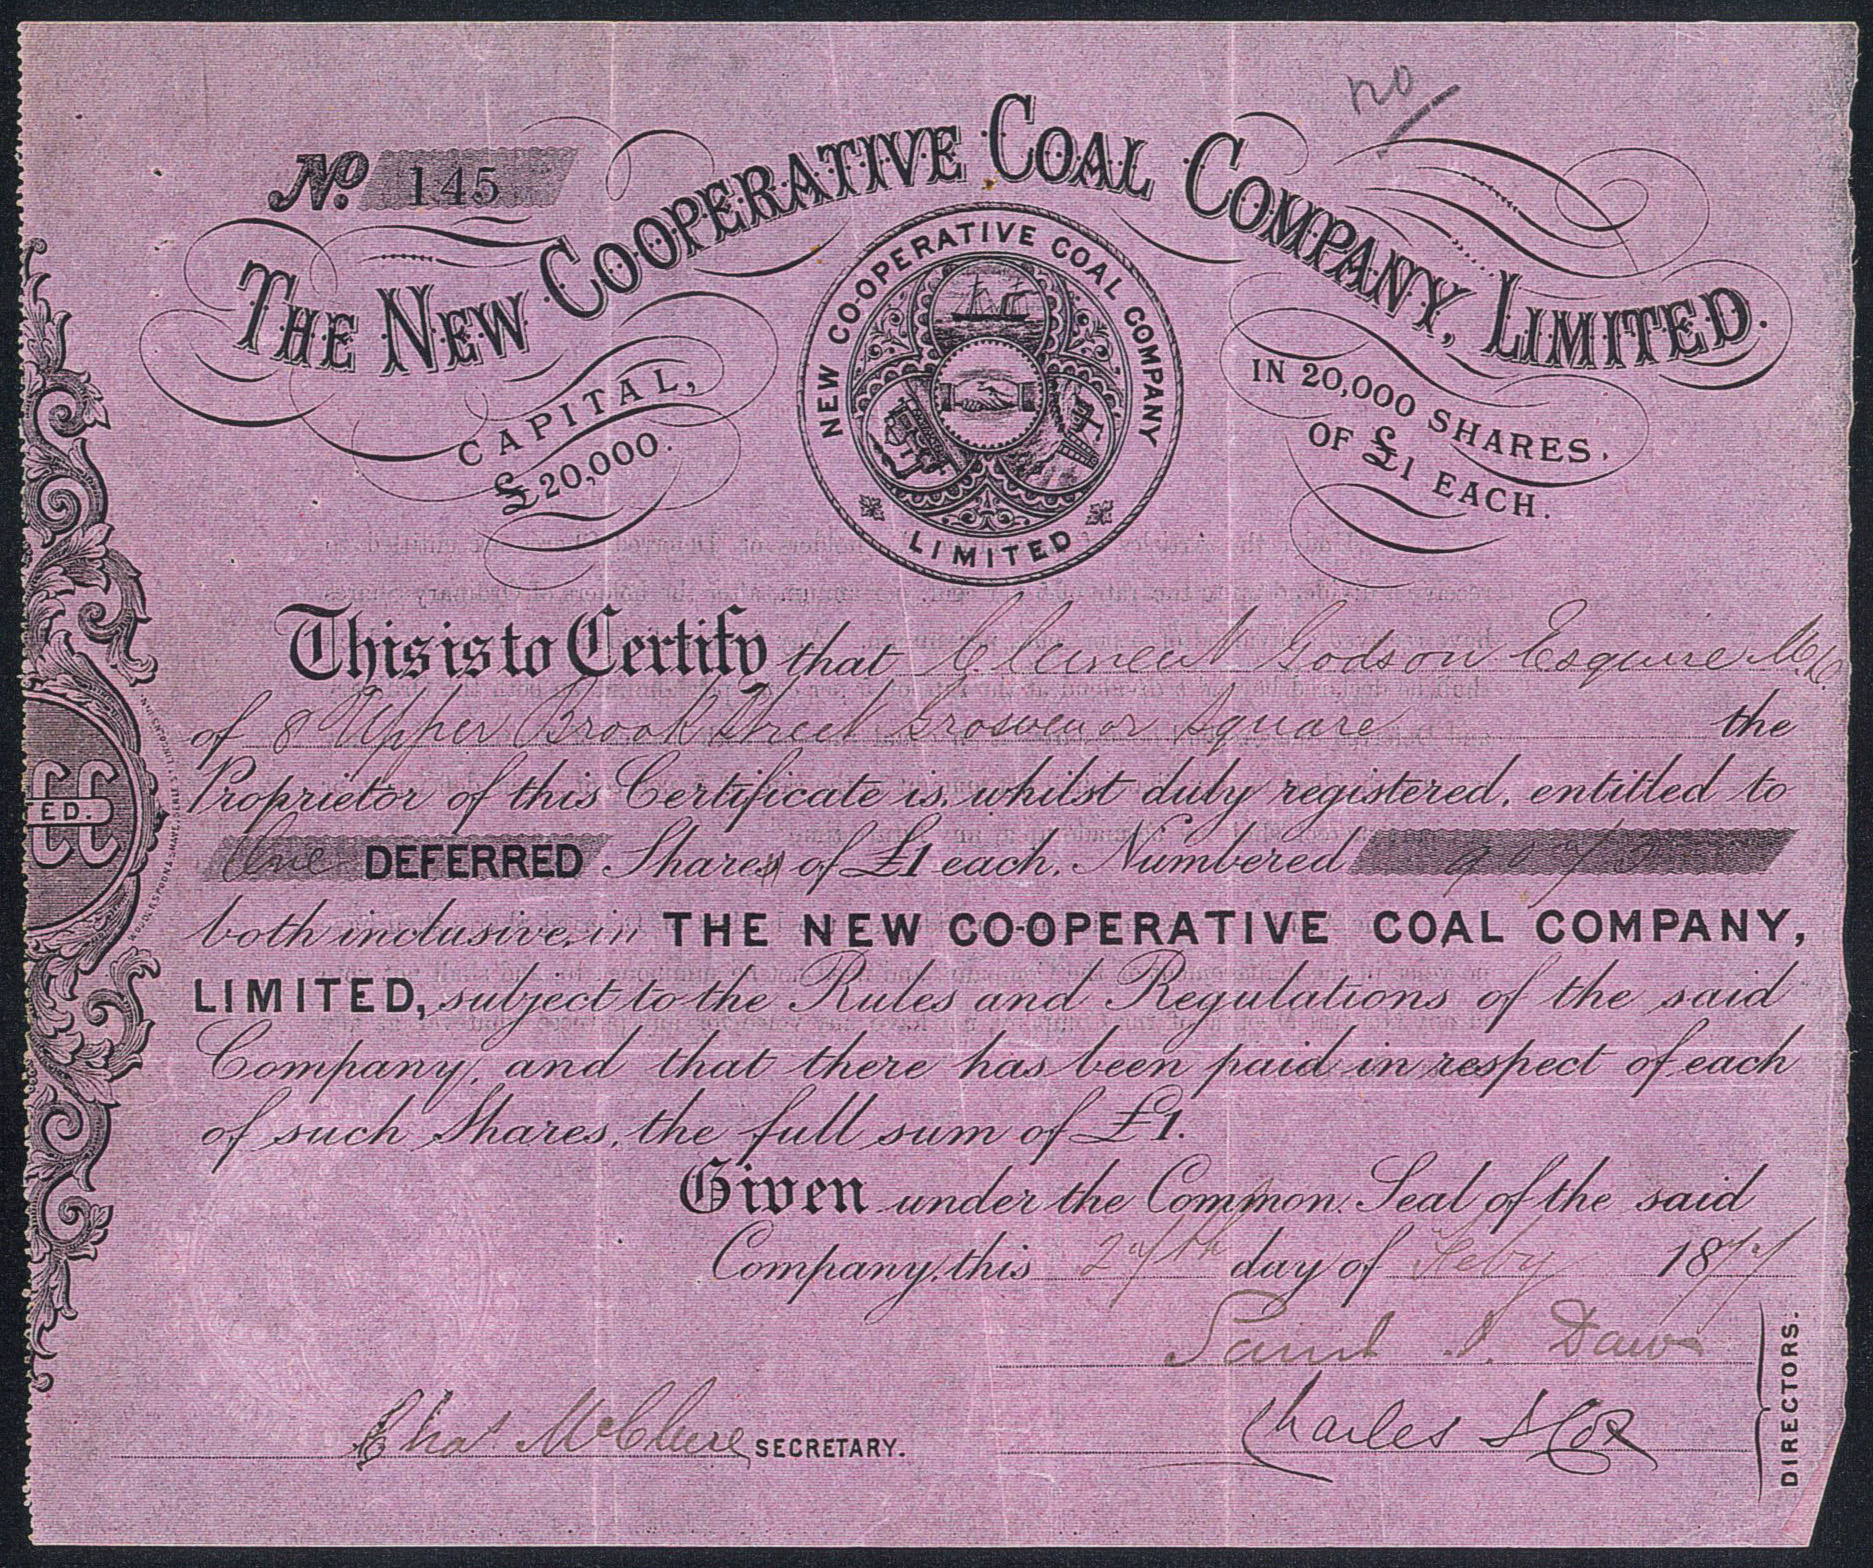 no
No. 145
THE NEW COOPERATIVE COAL COMPANY, LIMITED.
CAPITAL,
£20,000.
NEW CO-OPERATIVE COAL COMPANY
LIMITED
IN 20,000 SHARES.
OF £1 EACH.
This is to Certify that Clement Godson Esquire
of 8 Upper Brook Street Grosvenor Square the
Proprietor of this Certificate is, whilst duly registered, entitled to
One DEFERRED Shares of £1 each, Numbered
both inclusive, in THE NEW CO-OPERATIVE COAL COMPANY,
LIMITED, subject to the Rules and Regulations of the said
Company, and that there has been paid in respect of each
of such Shares, the full sum of £1.
Given under the Common Seal of the said
Company, this 27th day of Feby 1877
J. Daw
Charles Cox
DIRECTORS.
Chas McClure SECRETARY.
CC
ED.